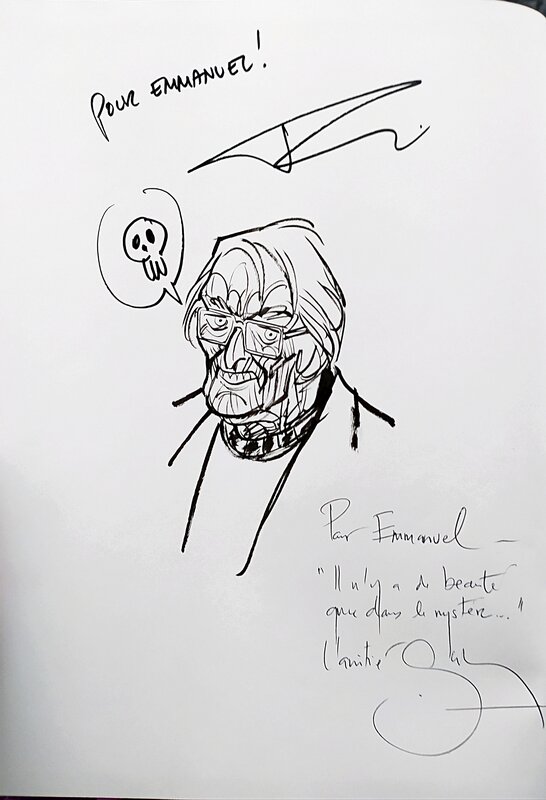 POUR EMMANUEL!
Pour Emmanuel —
"Il n'y a de beauté
que dans le mystère..."
L'amitié